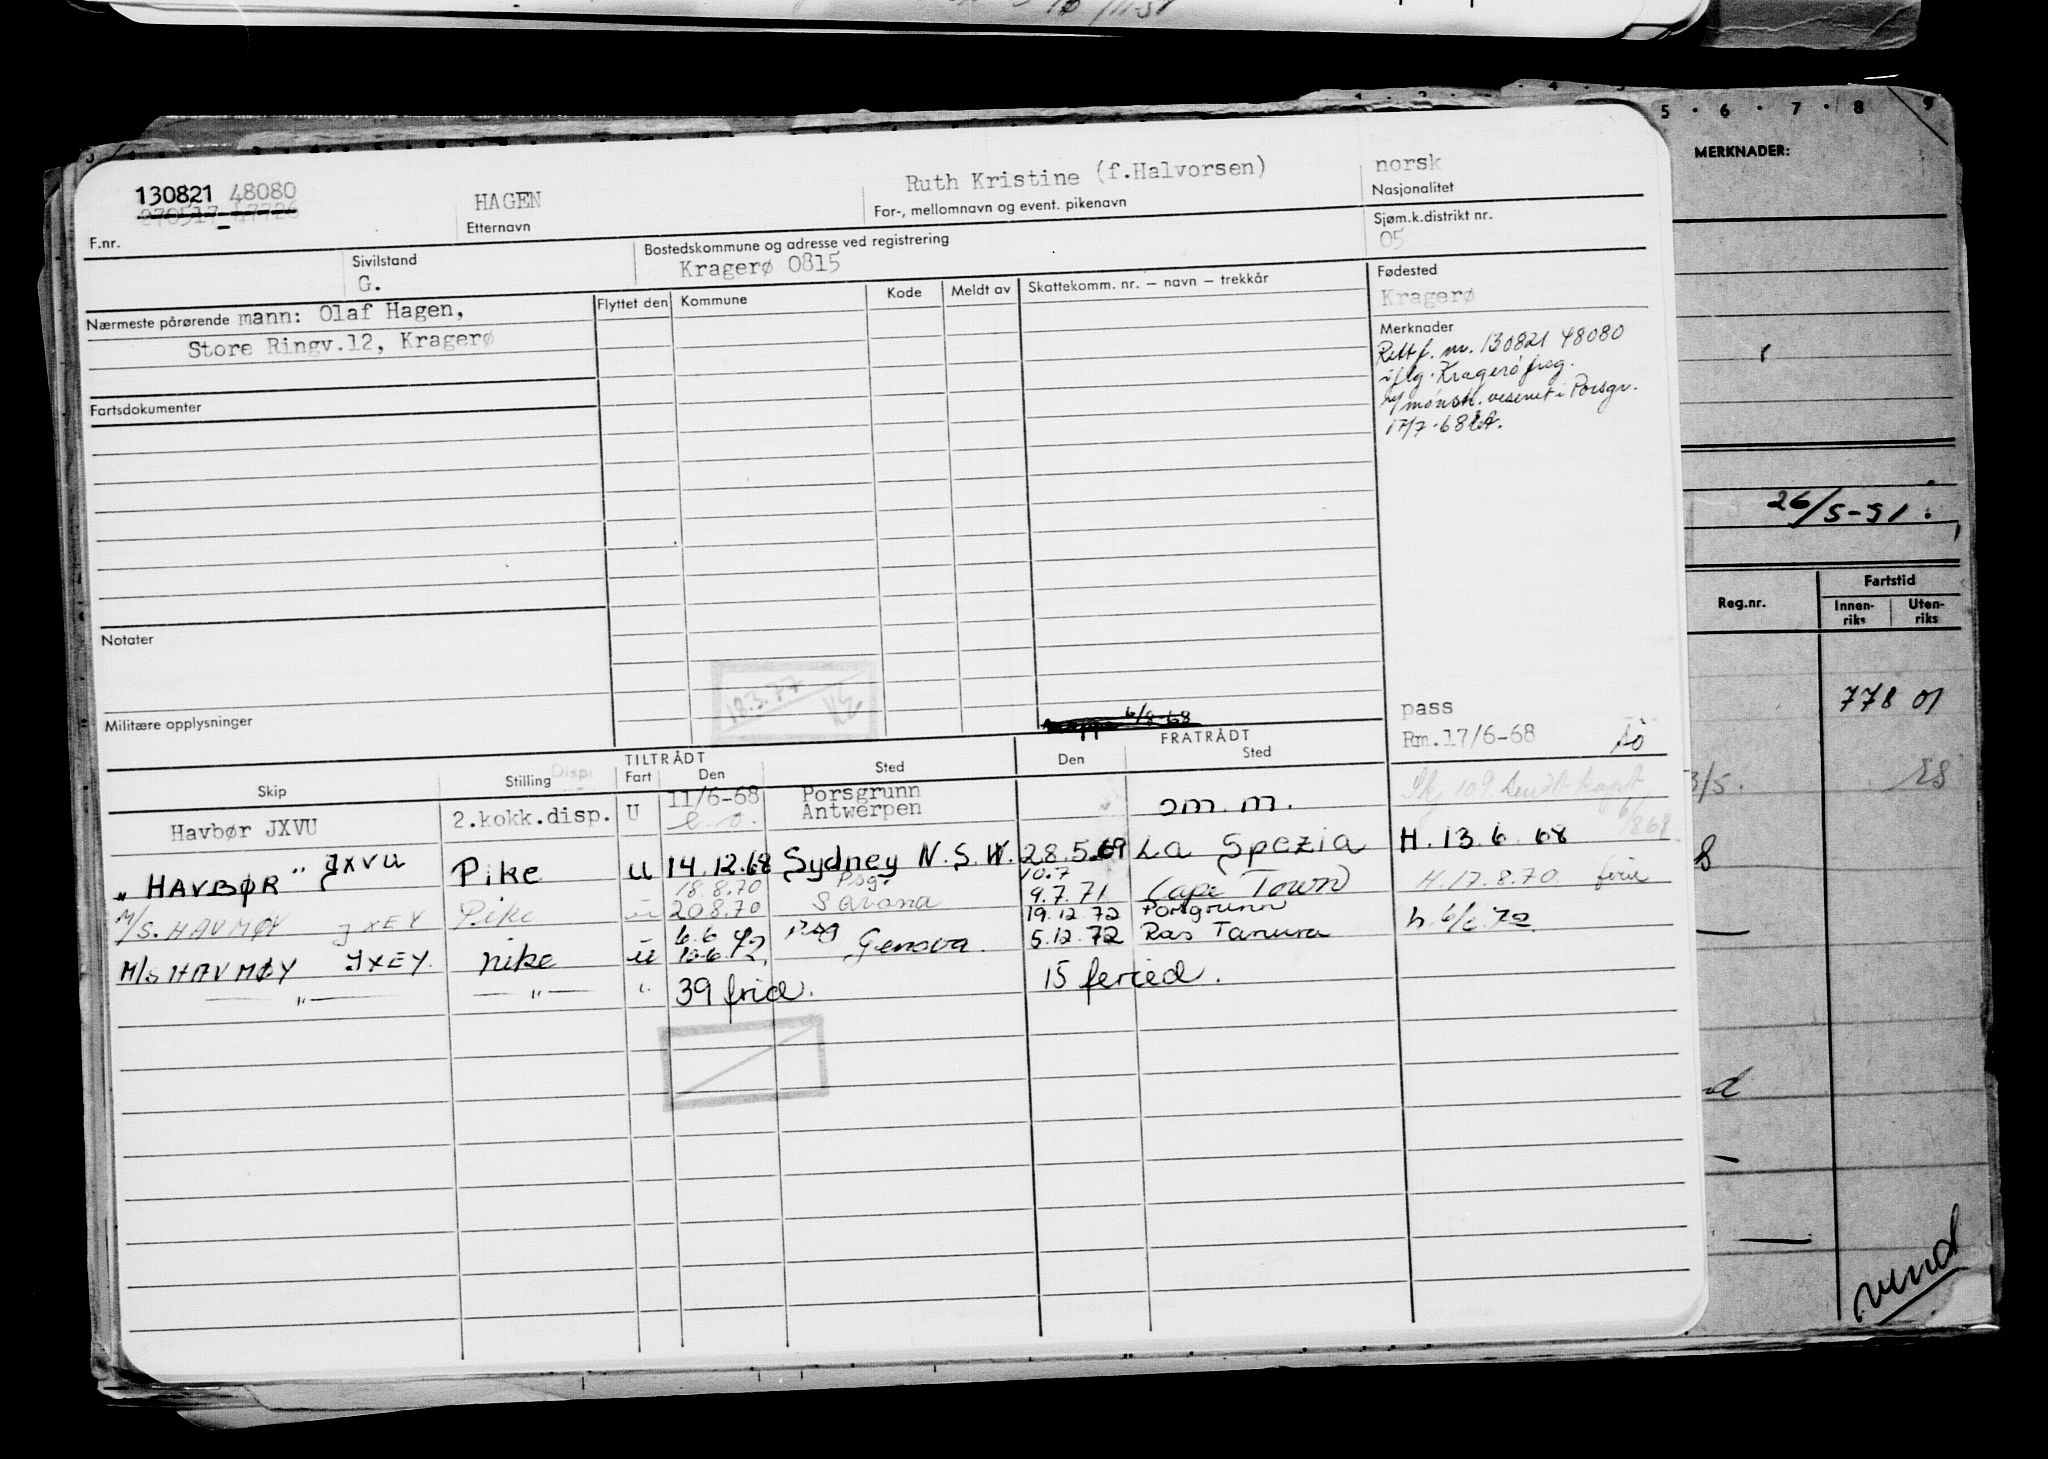 5 · 6 · 7 · 8 9
MERKNADER:
130821 48080
HAGEN
Ruth Kristine (f.Halvorsen)
norsk
270517-47726
F.nr.
Etternavn
For-, mellomnavn og event. pikenavn
Nasjonalitet
Sivilstand
G.
Bostedskommune og adresse ved registrering
Kragerø 0815
Sjøm.k.distrikt nr.
05
Nærmeste pårørende mann: Olaf Hagen,
Store Ringv.12, Kragerø
Flyttet den Kommune Kode Meldt av Skattekomm. nr. — navn — trekkår
Fødested
Kragerø
Merknader
Rett f. nr. 130821 48080
iflg. Kragerø freg.
m/mønstr. vesenet i Porsgr.
17/7-68
Fartsdokumenter
Notater
Militære opplysninger
18.3.77
6/8-68
pass
Rm.17/6-68
TILTRÅDT FRATRÅDT
Skip Stilling Disp. Fart Den Sted Den Sted
Havbør JXVU 2.kokk.disp. U 11/6-68 Porsgrunn
Antwerpen om.m.
" HAVBØR " JXVU Pike U 14.12.68 Sydney N.S.W. 28.5.69 La Spezia H. 13.6.68
18.8.70 Psg. 10.7
M/S. HAVMØY JXEY Pike u 20.8.70 Savona 9.7.71 Cape Town H. 17.8.70 ferie
6.6.72 Psg 19.12.72 Porsgrunn
M/S HAVMØY JXEY. pike ū 10.6.72. Genova. 5.12.72 Ras Tanura h. 6/6.72
— " — — " — " 39 frid. 15 feried.
26/5-51.
Reg.nr.
Fartstid
Innen-
riks
Uten-
riks
778 01
3/5.
8